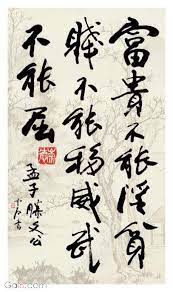 富貴不能淫貧
賤不能移威武
不能屈
孟子滕文公